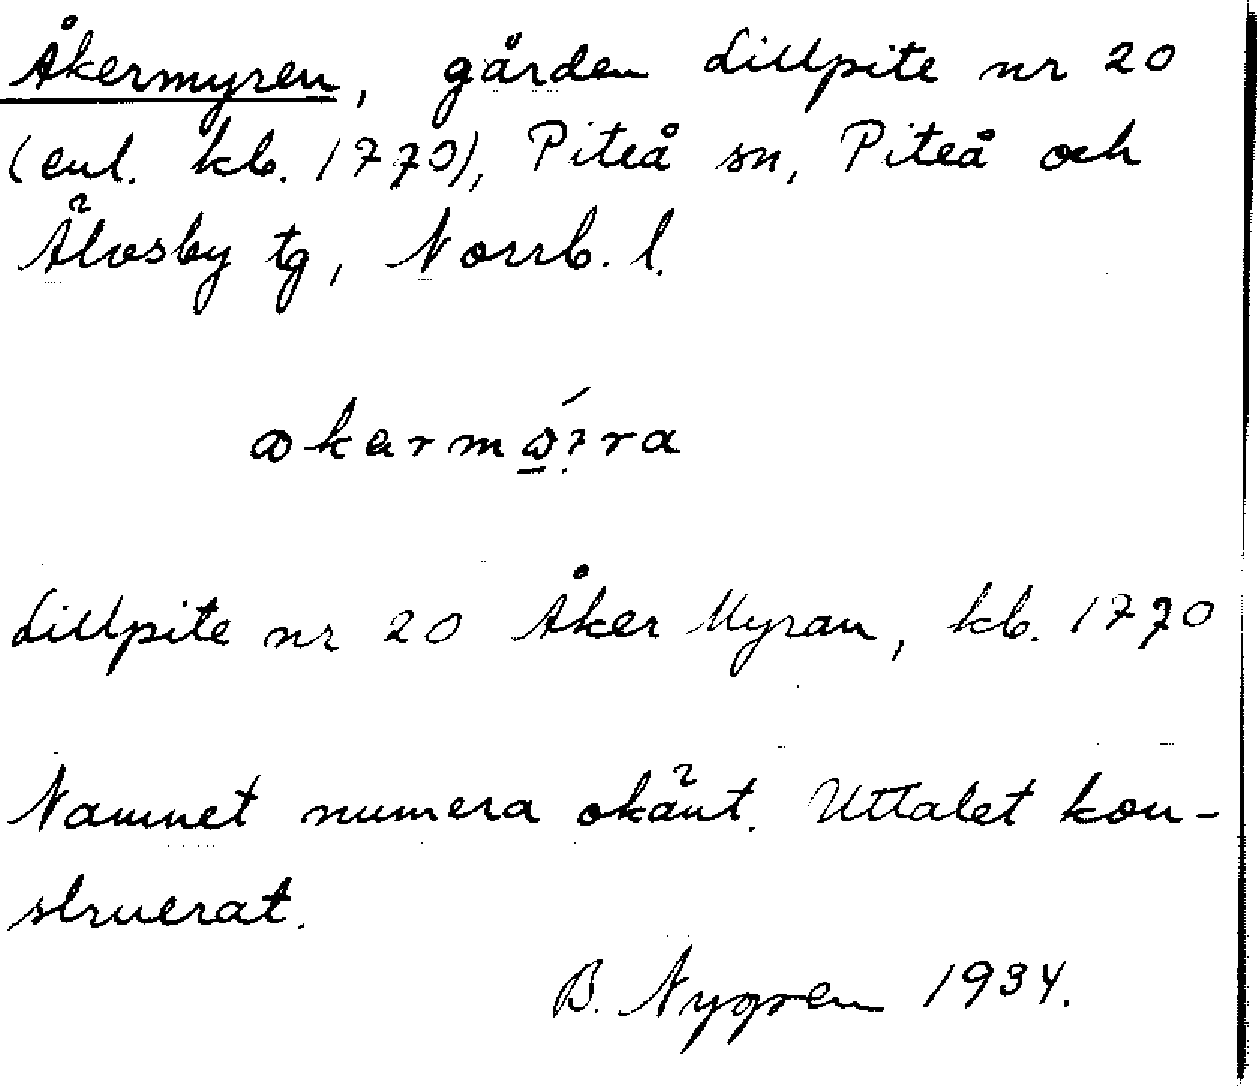 Åkermyren, gården Lillpite nr 20
(enl. kb. 1770), Piteå sn, Piteå och
Älvsby tg, Norrb. l.
Lillpite nr 20 Åker Myran, kb. 1770
Namnet numera okänt. Uttalet kon-
struerat.
B. Nygren 1934.